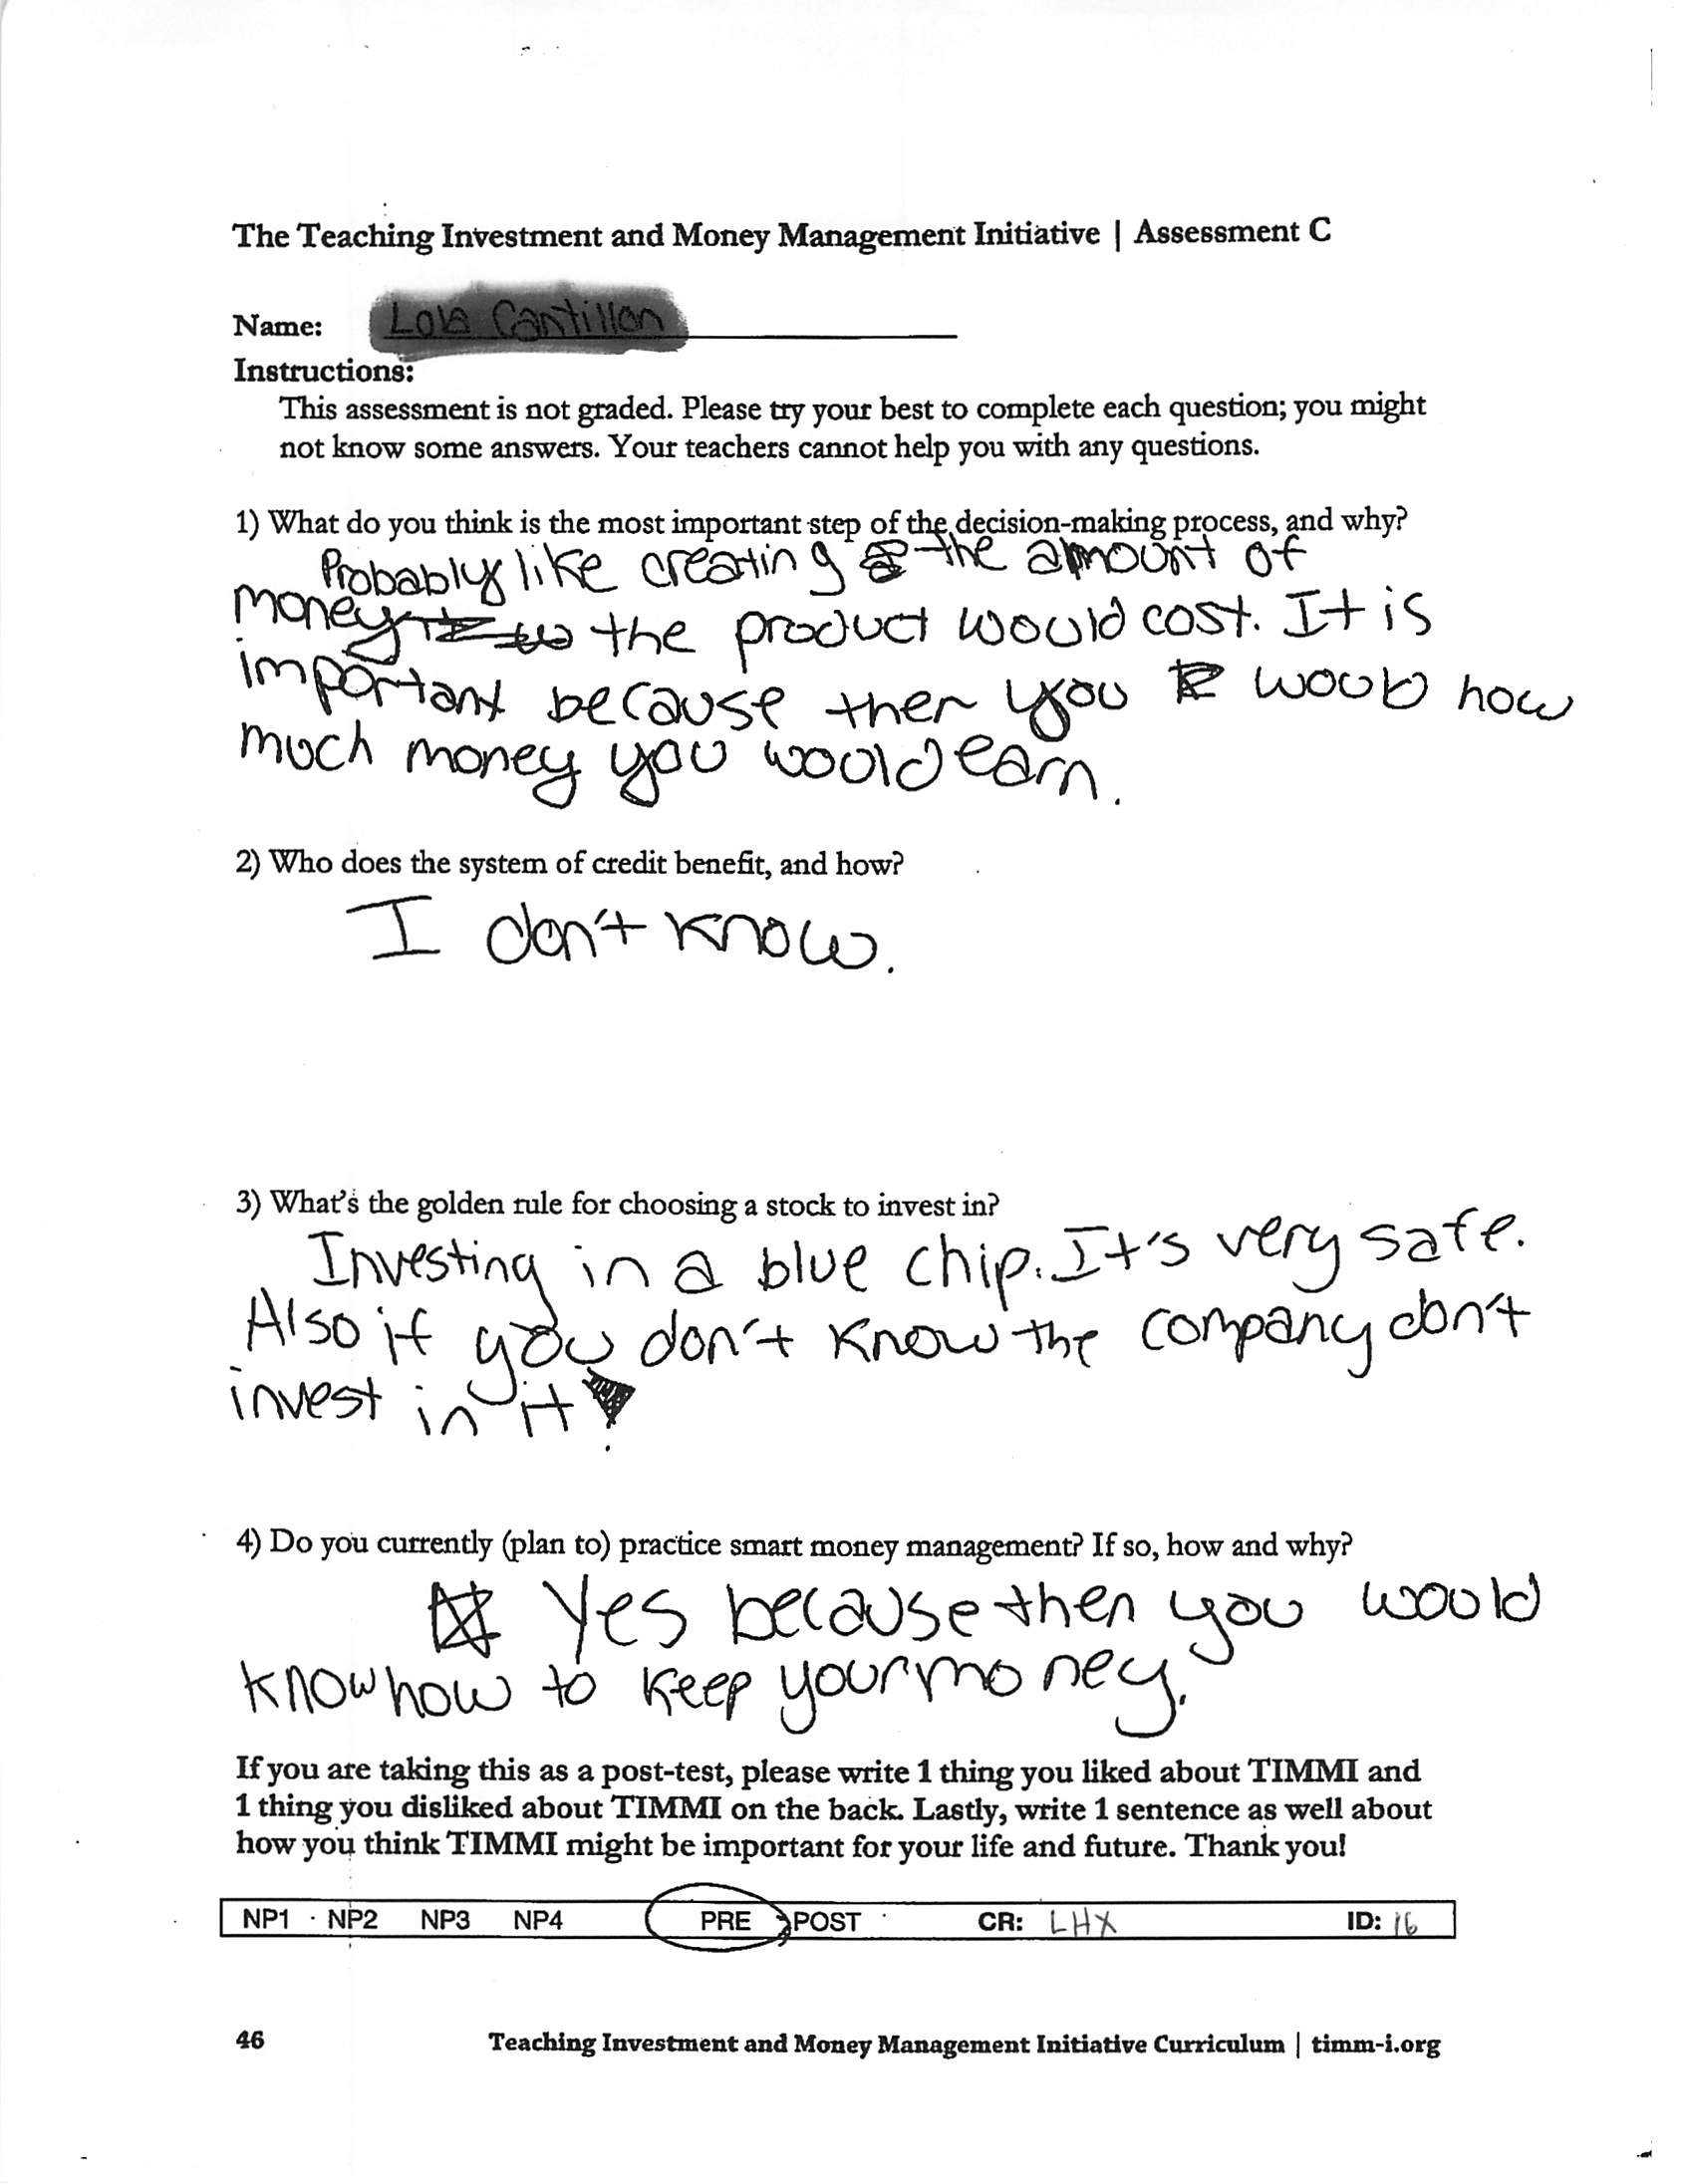 The Teaching Investment and Money Management Initiative | Assessment C
Name:
Instructions:
This assessment is not graded. Please try your best to complete each question; you might
not know some answers. Your teachers cannot help you with any questions.
1) What do you think is the most important step of the decision-making process, and why?
Probably like creating the amount of
money the product would cost. It is
important because then you woub how
much money you would earn.
2) Who does the system of credit benefit, and how?
I don't know.
3) What's the golden rule for choosing a stock to invest in?
Investing in a blue chip. It's very safe.
Also if you don't know the company don't
invest in it!
4) Do you currently (plan to) practice smart money management? If so, how and why?
Yes because then you would
know how to keep your money.
If you are taking this as a post-test, please write 1 thing you liked about TIMMI and
1 thing you disliked about TIMMI on the back. Lastly, write 1 sentence as well about
how you think TIMMI might be important for your life and future. Thank you!
NP1 NP2 NP3 NP4 PRE POST CR: LHX ID: 16
46 Teaching Investment and Money Management Initiative Curriculum | timm-i.org